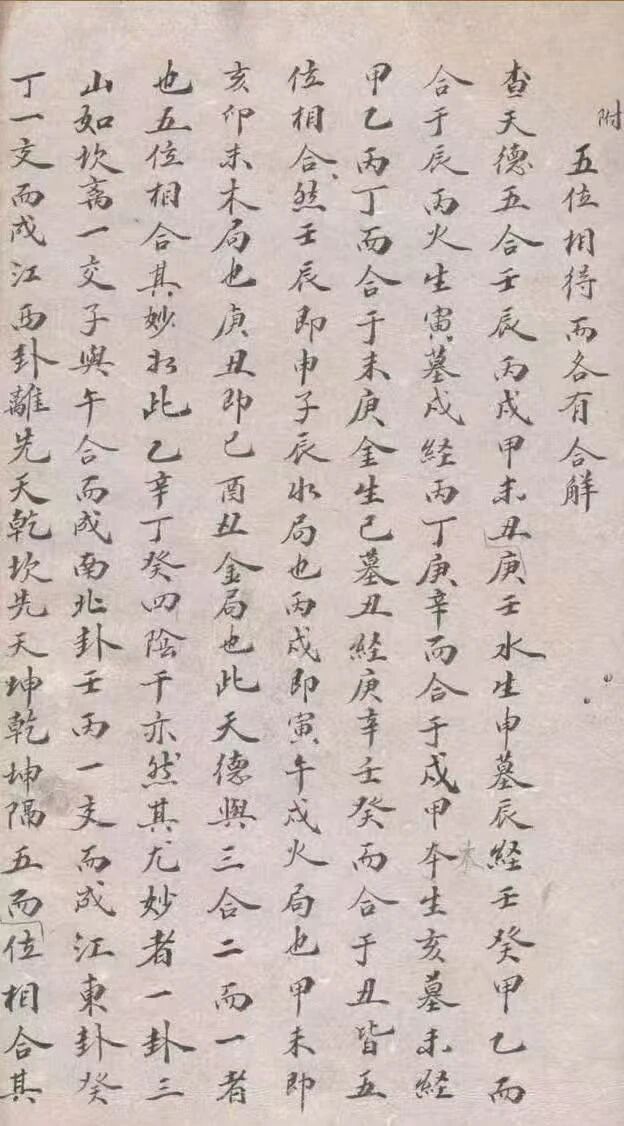 附
五位相得而各有合解
查天德五合壬辰丙戌甲未丑庚壬水生申墓辰経壬癸甲乙而
合于辰丙火生寅墓戌経丙丁庚辛而合于戌甲夲生亥墓未経
木
甲乙丙丁而合于未庚金生己墓丑経庚辛壬癸而合于丑皆五
位相合然壬辰即申子辰水局也丙戌即寅午戌火局也甲未即
亥卯未木局也庚丑即己酉丑金局也此天德與三合二而一者
也五位相合其妙扵此乙辛丁癸四陰干亦然其尤妙者一卦三
山如坎离一交子與午合而成南北卦壬丙一交而成江東卦癸
丁一交而成江西卦離先天乾坎先天坤乾坤隔五而位相合其